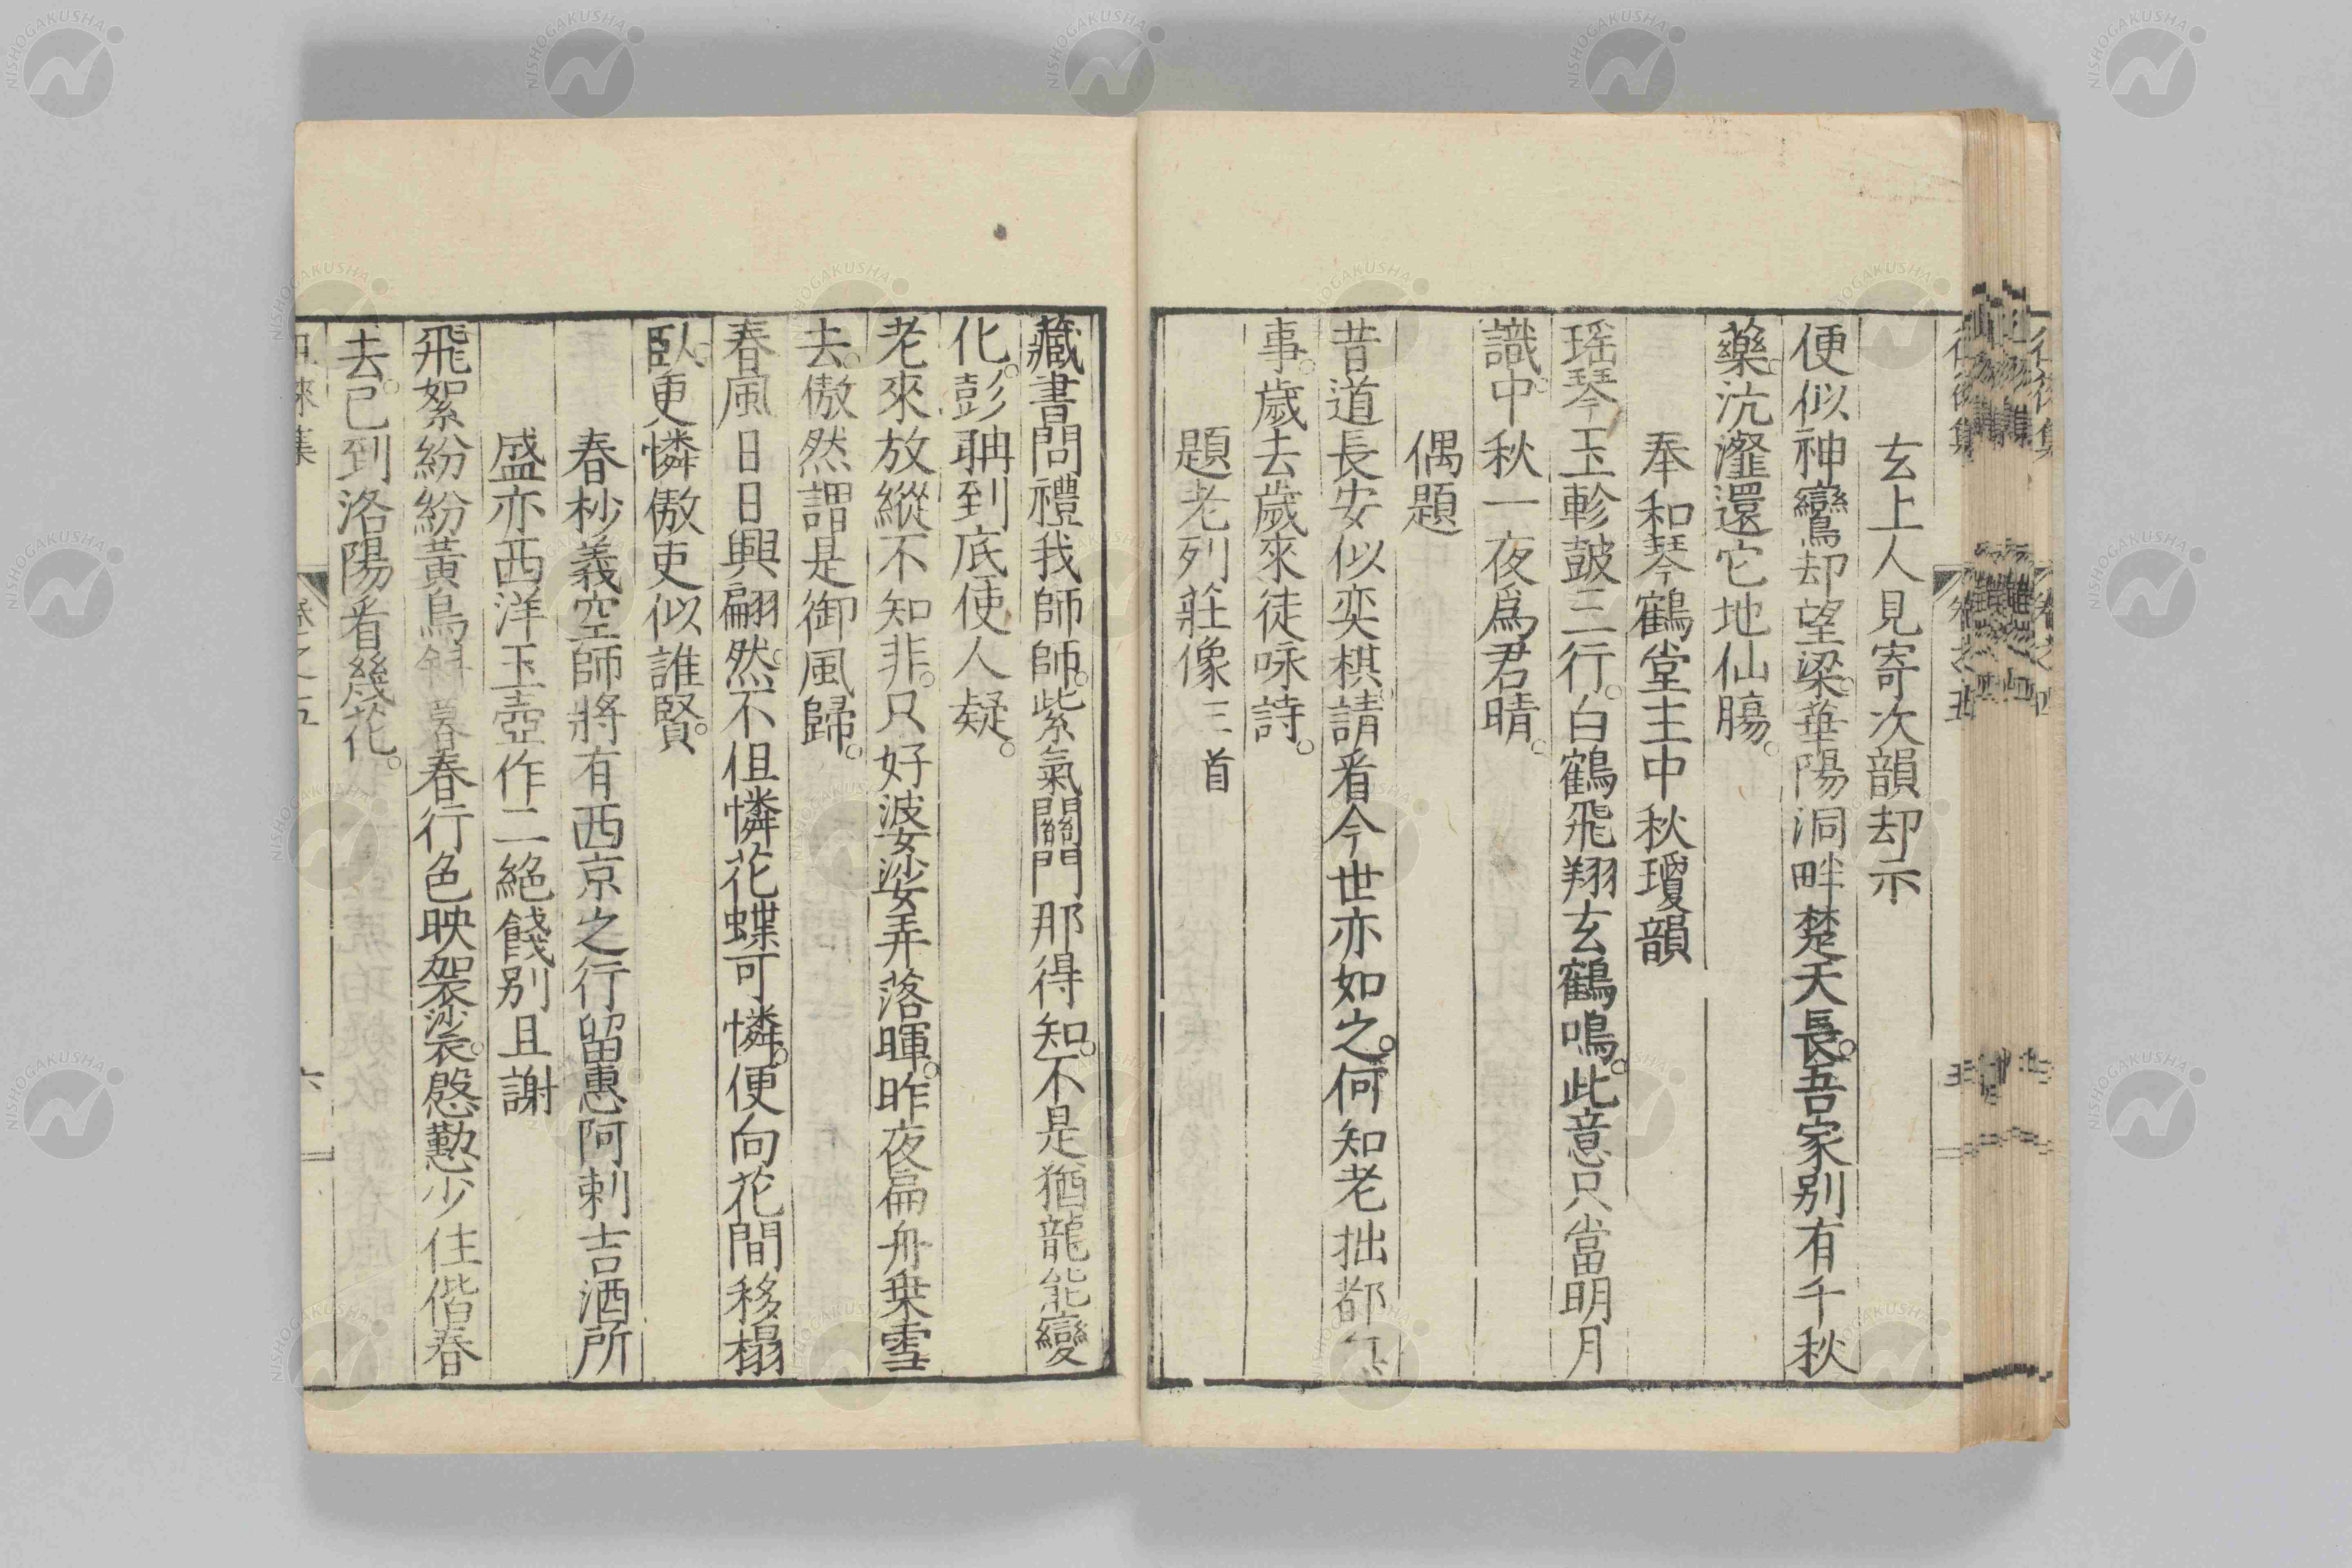 玄上人見寄次韻却示
便似神鸞却望梁。華陽洞畔楚天長。吾家別有千秋
藥。沆瀣還它地仙膓。
奉和琴鶴堂主中秋瓊韻
瑶琴玉軫鼓三行。白鶴飛翔玄鶴鳴。此意只當明月
識。中秋一夜爲君晴。
偶題
昔道長安似奕棋。請看今世亦如之。何知老拙都
事。歲去歲來徒咏詩。
題老列莊像三首
藏書問禮我師師。紫氣關門那得知。不是猶龍能變
化。彭聃到底使人疑。
老來放縱不知非。只好婆娑弄落暉。昨夜扁舟乗雪
去。傲然謂是御風歸。
春風日日興翩然。不但憐花蝶可憐。便向花間移榻
臥。更憐傲吏似誰賢。
春杪義空師將有西京之行留惠阿剌吉酒所
盛亦西洋玉壺作二絕餞別且謝
飛絮紛紛黃鳥斜暮春行色映袈裟。慇懃少住偕春
去。已到洛陽看幾花。
卷之五
六
NISHOGAKUSHA